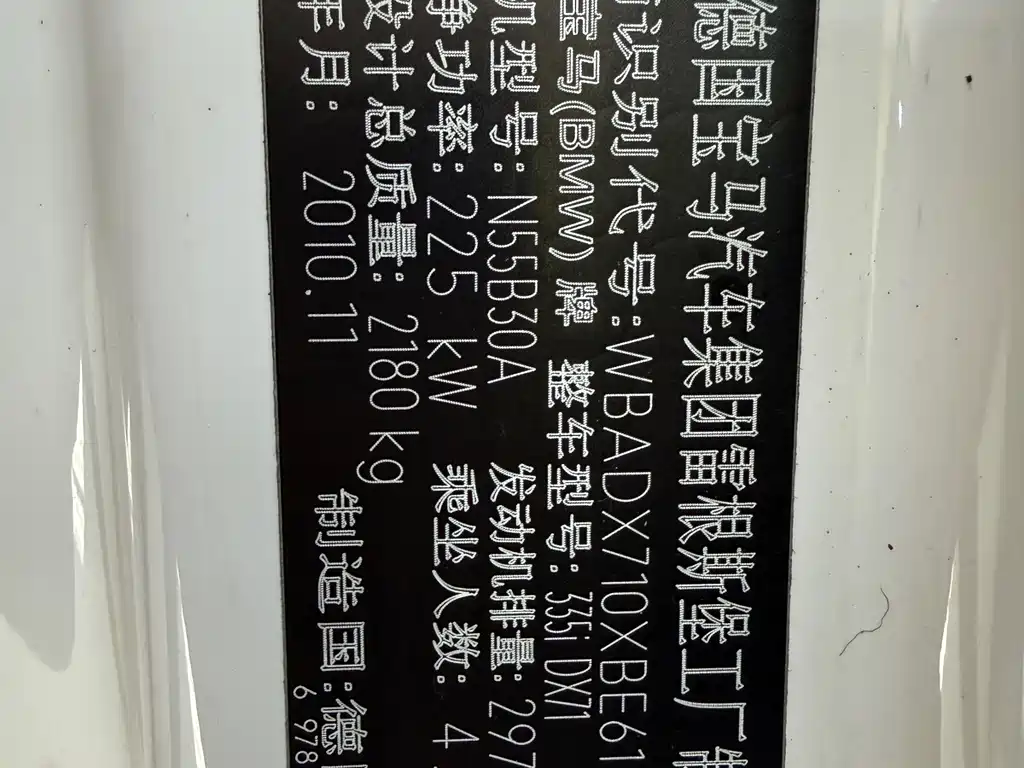 德国宝马汽车集团雷根斯堡工厂制
识别代号:WBADX710XBE61
宝马(BMW) 牌 整车型号:335i DX71
机型号: N55B30A 发动机排量: 297
净功率: 225 kW 乘坐人数: 4
设计总质量: 2180 kg
年月: 2010.11 制造国:德
6 978